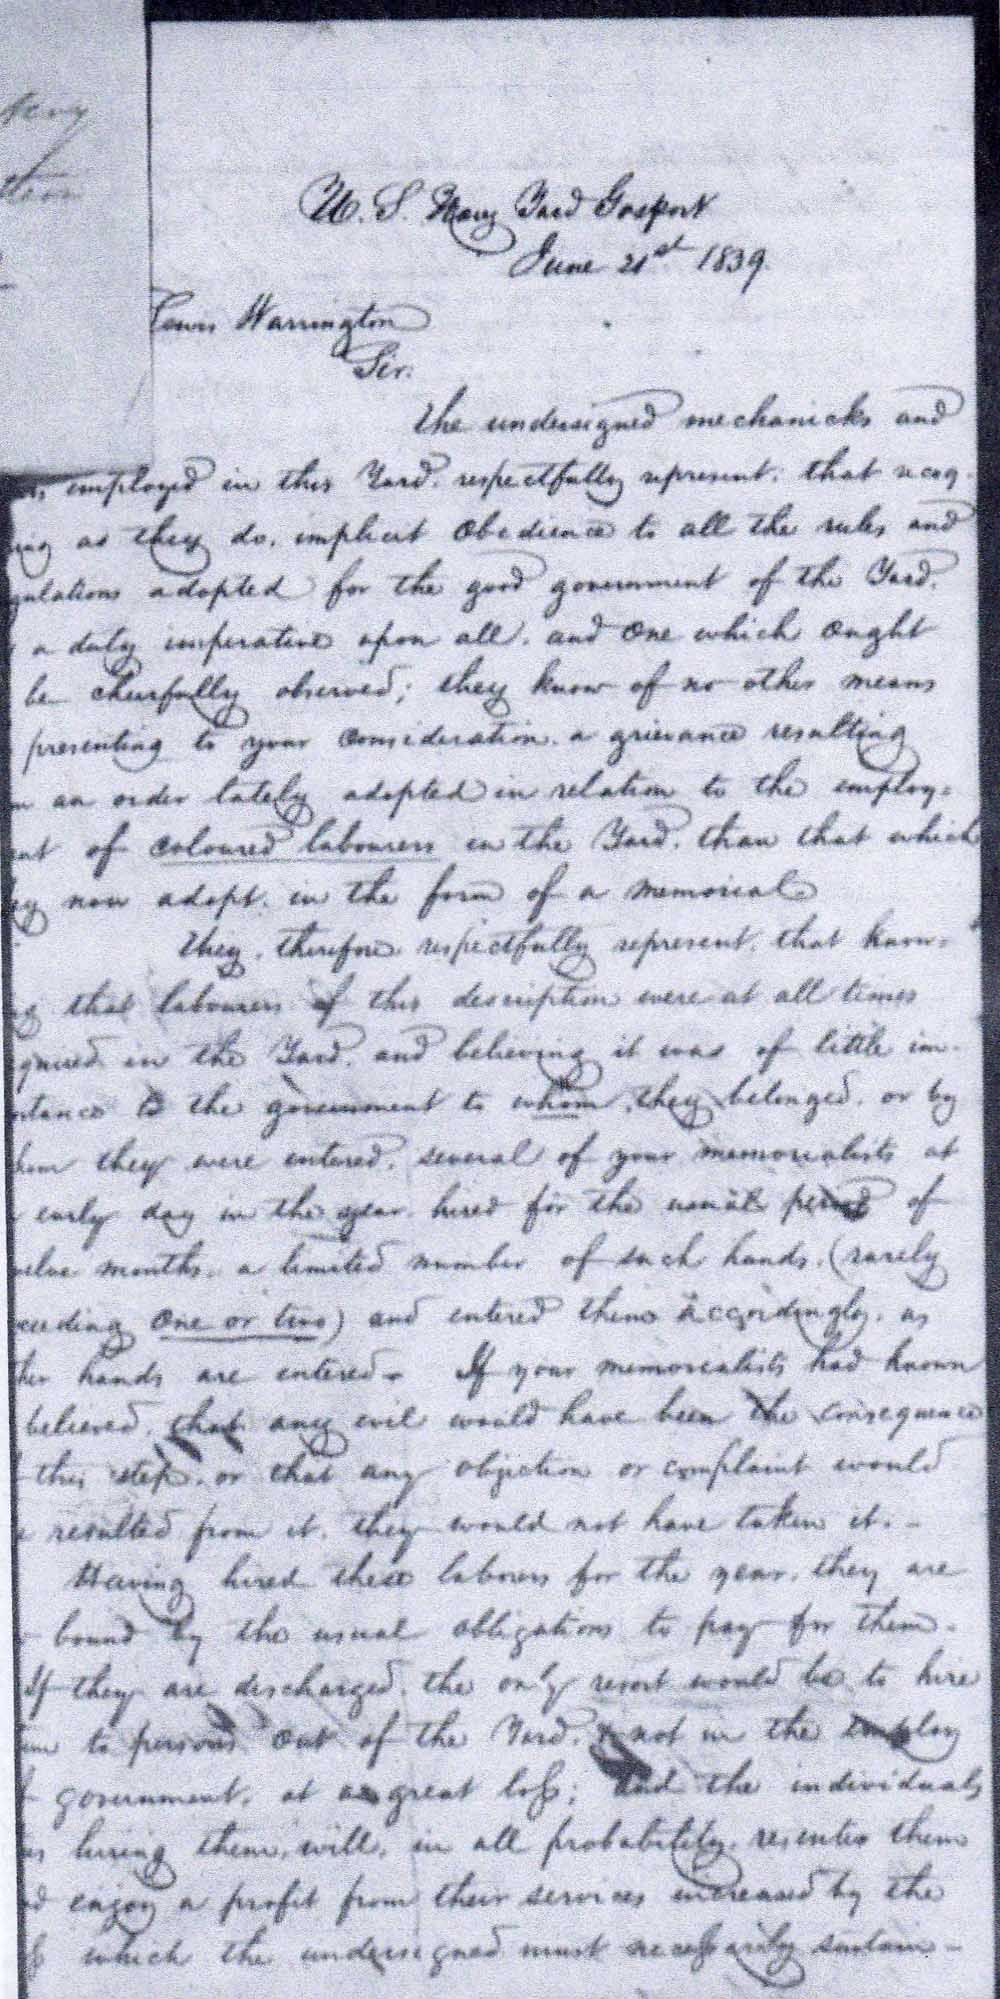 U. S. Navy Yard Gosport
June 21st 1839.
Lewis Warrington
Sir.
The undersigned mechanicks and
employed in this Yard. respectfully represent. that recog-
ing as they do. implicit obedience to all the rules and
gulations adopted for the good government of the Yard.
a duty imperative upon all. and one which ought
be chearfully observed; they know of no other means
presenting to your consideration. a grievance resulting
an order lately adopted in relation to the employ=
nt of coloured labourers in the Yard. than that which
ey now adopt. in the form of a memorial
They, therefore respectfully represent. that know=
g that labourers of this description were at all times
quired in the Yard. and believing it was of little im-
rtance to the government to whom they belonged. or by
hom they were entered. several of your memorialists at
early day in the year. hired for the usual period of
welve months. a limited number of such hands. (rarely
ceeding one or two) and entered them accordingly. as
her hands are entered. If your memorialists had known
believed. that any evil would have been the consequence
this step. or that any objection or complaint would
resulted from it. they would not have taken it.-
Having hired these laborers for the year. they are
bound by the usual obligations to pay for them.
If they are discharged. the only resort would be to hire
em to persons out of the Yard. & not in the employ
government. at a great loss; and the individuals
us hiring them, will. in all probability. reenter them
nd enjoy a profit from their services increased by the
which the undersigned must necessarily sustain-